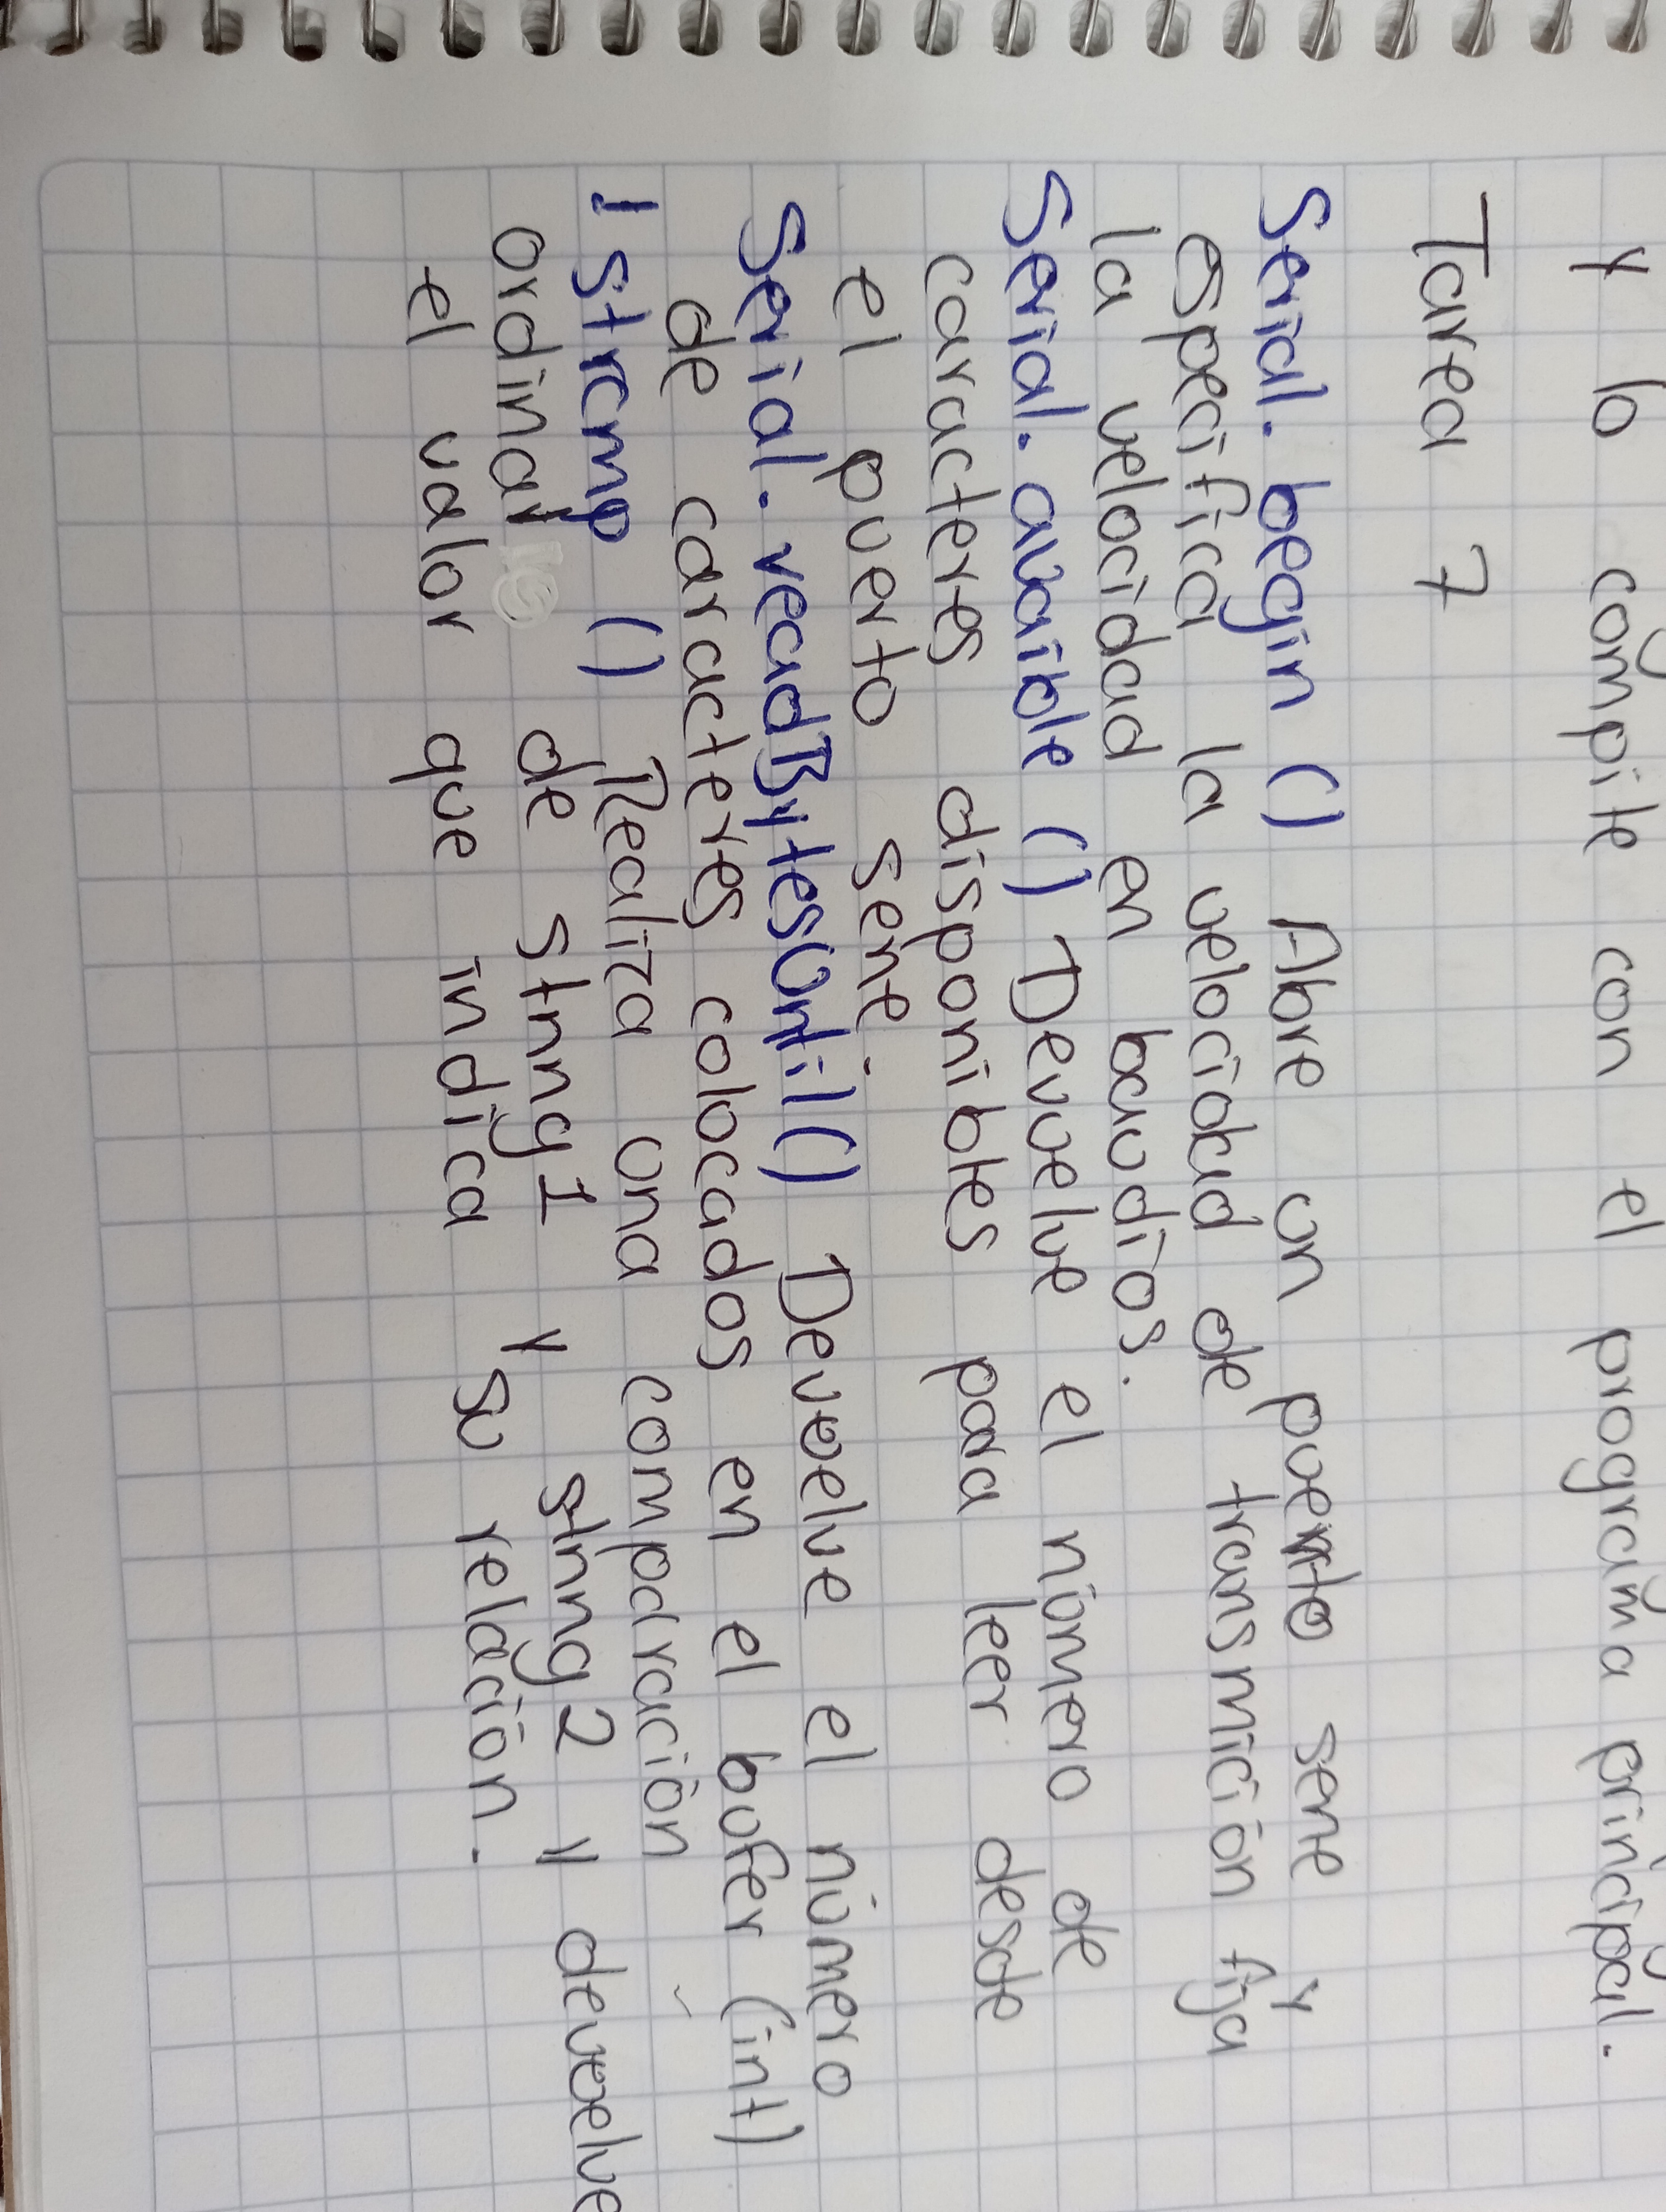 y lo compile con el programa principal.
Tarea 7
Serial. begin () Abre un puerto serie y
especifica la velocidad de transmición fija
la velocidad en baudios.
Serial. avaible () Devuelve el número de
caracteres disponibles para leer desde
el puerto serie.
Serial. readBytesUntil() Devuelve el número
de caracteres colocados en el bufer (int)
! Strcmp () Realiza una comparación
ordinal de string1 y string2 y devuelve
el valor que indica su relación.